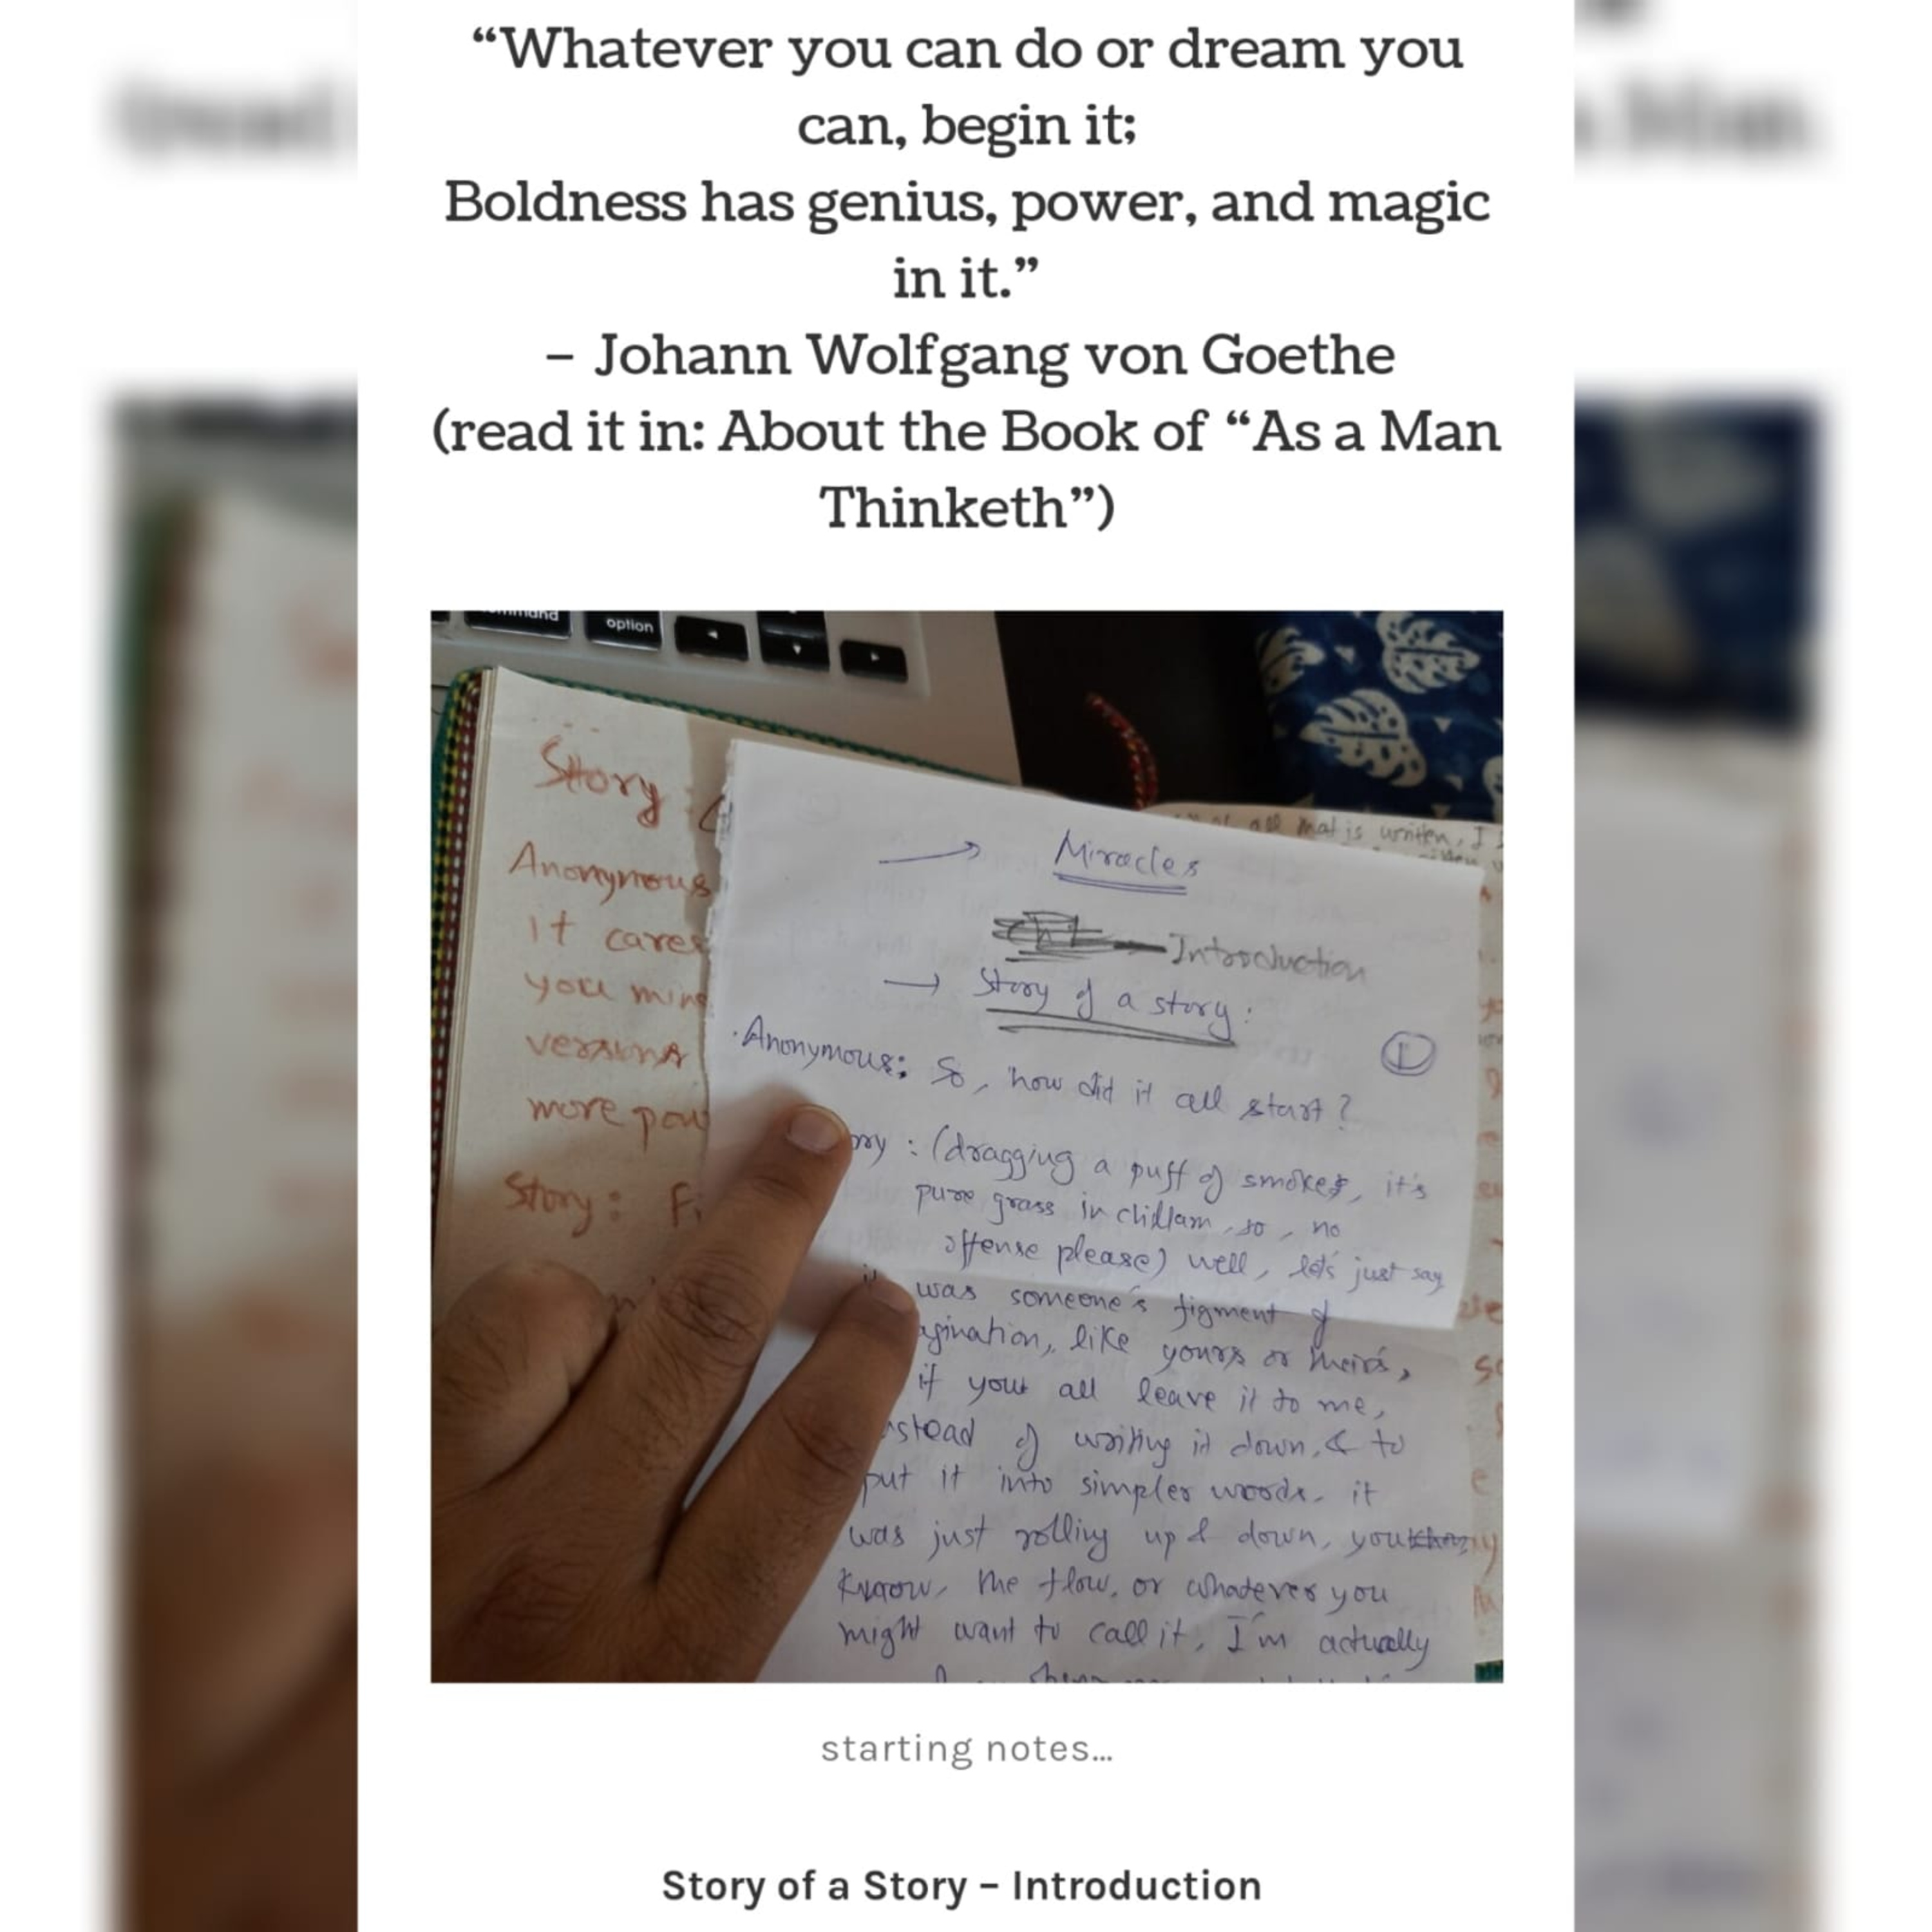 “Whatever you can do or dream you
can, begin it;
Boldness has genius, power, and magic
in it.”
– Johann Wolfgang von Goethe
(read it in: About the Book of “As a Man
Thinketh”)
option
Story :
Anonymous
it cares
you
versions
more
Story :
all that is written, I
→ Miracles
Introduction
→ Story of a story :
1
Anonymous: So, how did it all start ?
: (dragging a puff of smoke, it's
pure grass in chillam, so, no
offense please) well, let's just say
was someone's figment of
like yours or theirs,
if you all leave it to me,
of writing it down, & to
put it into simpler words, it
was just rolling up & down, you
know, the flow, or whatever you
might want to call it, I'm actually
starting notes…
Story of a Story – Introduction